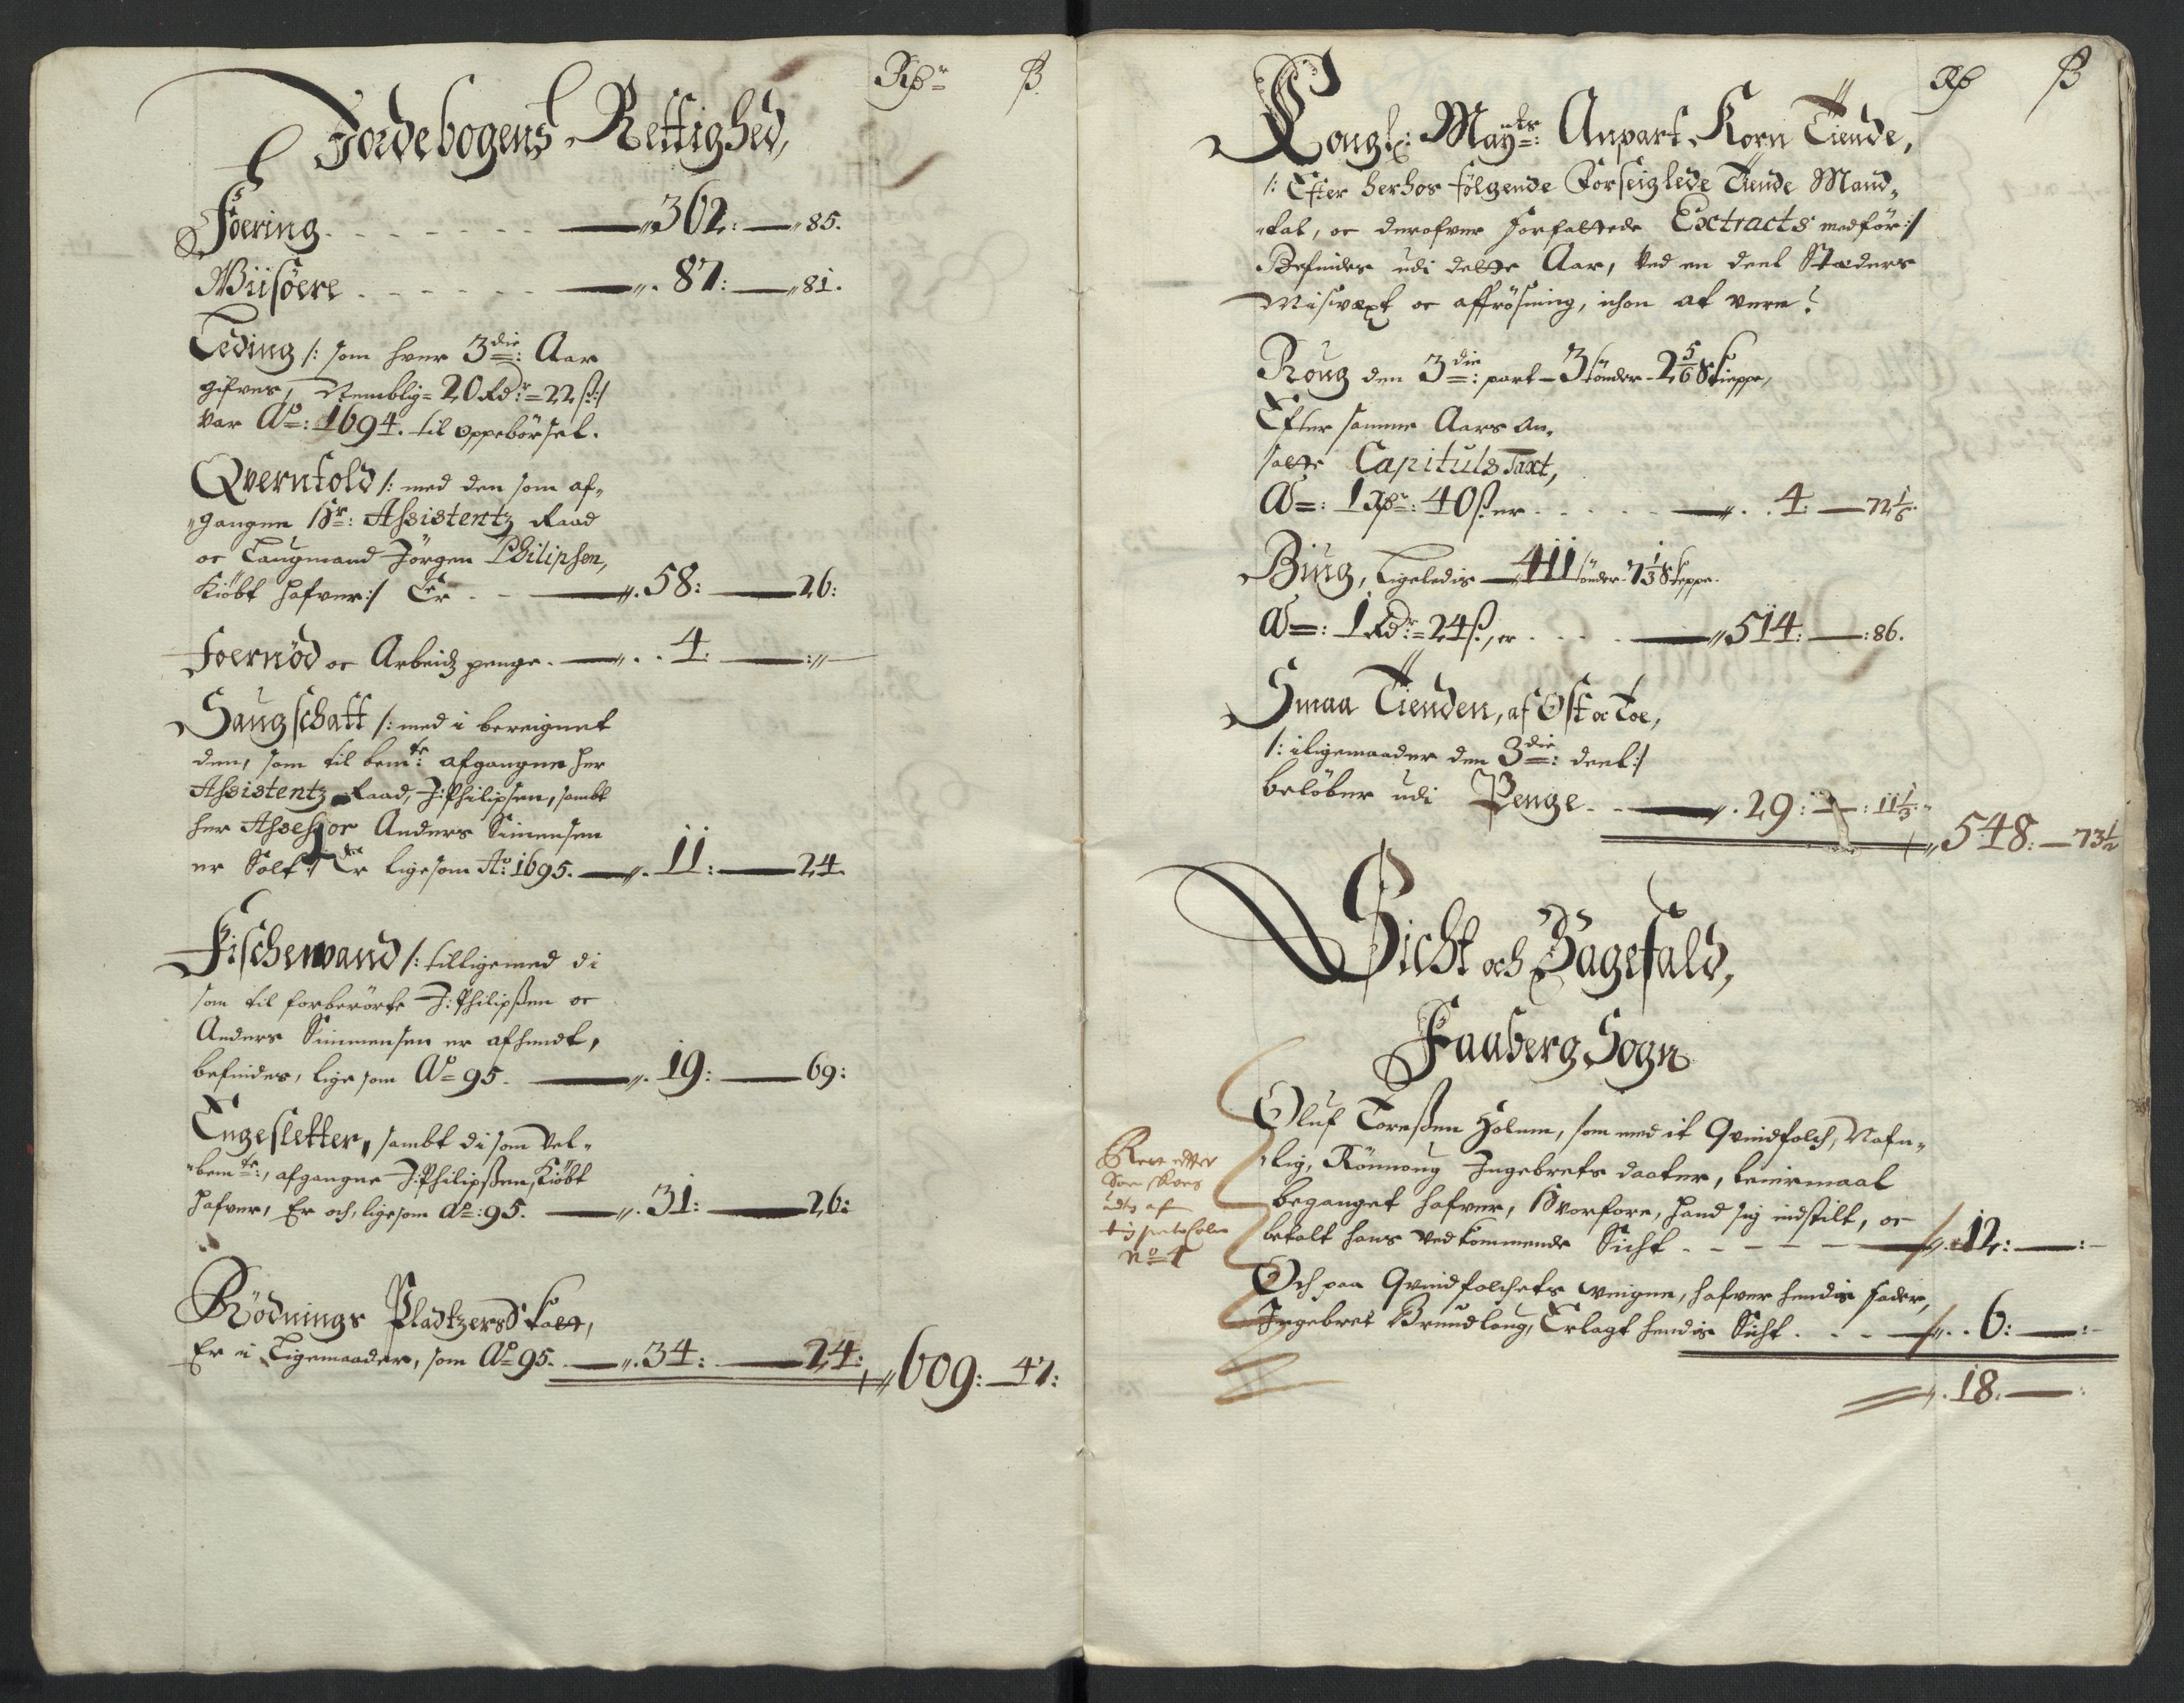 Rdr ß
Jordebogens Rettighed,
Foering 362: 85.
Wiisöere 87: 81.
Leding /: som hver 3die: Aar
gifves, Nemblig 20 Rdr 22 ß:/
var Ao: 1694. til oppebörsel.
Qverntold /: med den som af„
„gangne Hr: Assistentz Raad
oc Laugmand Jörgen Philipsen,
Kiöbt hafver:/ Er 58: 26:
Foernöd oc Arbeidz penge. 4:
Saugschatt /: med i bereignet
den, som til bemte: afgangne her
Assistentz Raad, J: Philipsen, sambt
her Assessor Anders Simensen
er Solt:/ Er ligesom Ao: 1695. 11: 24.
Fischewand /: tilligemed di
som til forberörte J: Philipßen oc
Anders Simmensen er afhendt,
befindes, lige som Ao 95. 19: 69:
Engesletter, sambt di som vel„
„bemte:, afgangne J: Philipßen, Kiöbt
hafver, Er och, ligesom Ao: 95. 31: 26:
Rödnings Pladtzers Skatt,
Er i Ligemaader, som Ao 95. 34: 24:
609: 47:
Rd ß
Kongl: Mayts: Anpart Korn Tiende,
/: Efter herhos fölgende Forseiglede Tiende Mand„
„tal, oc derofver forfattede Extracts medför:/
Befindes udi dette Aar, ved en deel Stæders
Misvæxt oc affrösning, ichon at vere?
Roug den 3die: part 3 tönder 2 5/6 Skieppe,
Efter samme Aars an„
satte Capituls Taxt,
a: 1 Rdr: 40 ß er 4 72 1/6.
Biug, Ligeledis 411 tönder 7 1/3 Skeppe.
a: 1 Rdr: 24 ß, er 514: 86.
Smaa Tienden, af Ost oc Toe,
/: iligemaader den 3die: deel:/
belöber udi Penge 29: 11 1/3.
548: 73 1/2
Sicht och Sagefald,
Faaberg Sogn
Oluf Toreßen Holmen, som med it Qvindfolch, Nafn„
„lig, Rönnoug Ingebrets daater, leiermaal
beganget hafver, Hvorfore, hand sig indstilt, oc
betalt hans vedkommende Sicht 12:
Och paa Qvindfolchets veigne, hafver hendis fader,
Ingebret Brundlaug, Erlagt hendis Sicht 6:
18.
No 4